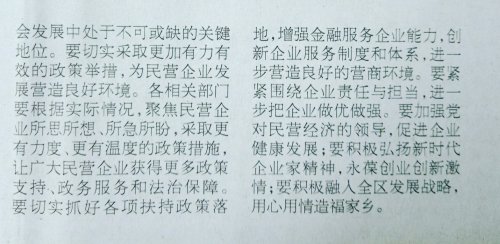 会发展中处于不可或缺的关键
地位。要切实采取更加有力有
效的政策举措，为民营企业发
展营造良好环境。各相关部门
要根据实际情况，聚焦民营企
业所思所想、所急所盼，采取更
有力度、更有温度的政策措施，
让广大民营企业获得更多政策
支持、政务服务和法治保障。
要切实抓好各项扶持政策落
地，增强金融服务企业能力，创
新企业服务制度和体系，进一
步营造良好的营商环境。要紧
紧围绕企业责任与担当，进一
步把企业做优做强。要加强党
对民营经济的领导，促进企业
健康发展；要积极弘扬新时代
企业家精神，永葆创业创新激
情；要积极融入全区发展战略，
用心用情造福家乡。